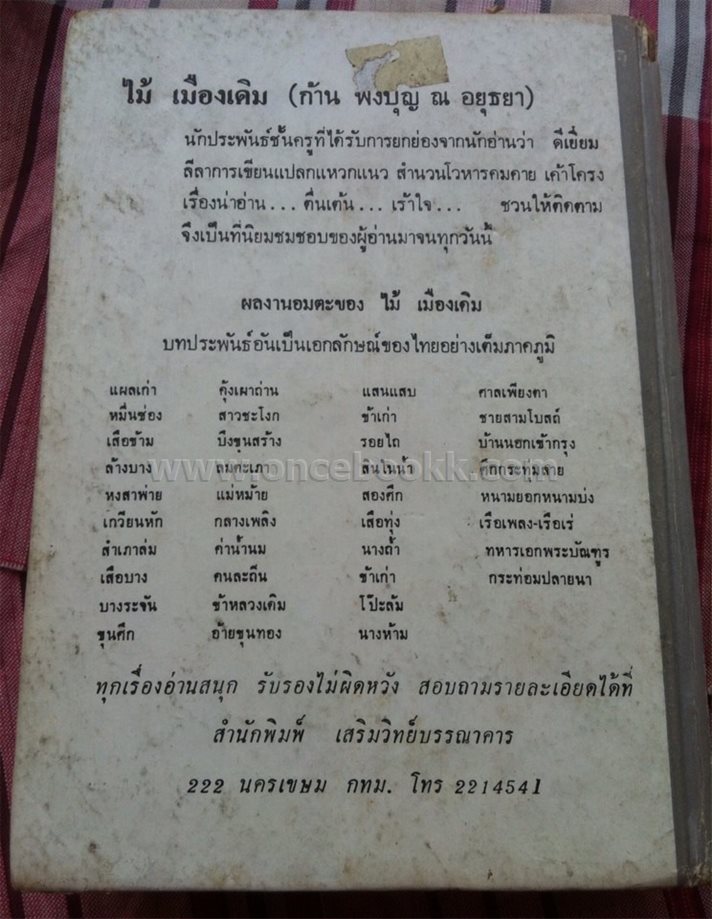 ไม้ เมืองเดิม (ก้าน พึ่งบุญ ณ อยุธยา)
นักประพันธ์ชั้นครูที่ได้รับการยกย่องจากนักอ่านว่า ดีเยี่ยม
ลีลาการเขียนแปลกแหวกแนว สำนวนโวหารคมคาย เค้าโครง
เรื่องน่าอ่าน... ตื่นเต้น... เร้าใจ... ชวนให้ติดตาม
จึงเป็นที่นิยมชมชอบของผู้อ่านมาจนทุกวันนี้
ผลงานอมตะของ ไม้ เมืองเดิม
บทประพันธ์อันเป็นเอกลักษณ์ของไทยอย่างเต็มภาคภูมิ
แผลเก่า คุ้งเผาถ่าน แสนแสบ ศาลเพียงตา
หมื่นซ่อง สาวชะโงก ข้าเก่า ชายสามโบสถ์
เสือข้าม บึงขุนสร้าง รอยไถ บ้านนอกเข้ากรุง
ล้างบาง สินในน้ำ ศึกกระทุ่มลาย
www.oncebookk.com
หงสาพ่าย แม่หม้าย สองศึก หนามยอกหนามบ่ง
เกวียนหัก กลางเพลิง เสือทุ่ง เรือเพลง-เรือเร่
สำเภาล่ม ค่าน้ำนม นางถ้ำ ทหารเอกพระบัณฑูร
เสือบาง คนละถิ่น ข้าเก่า กระท่อมปลายนา
บางระจัน ข้าหลวงเดิม โป๊ะล้ม
ขุนศึก อ้ายขุนทอง นางห้าม
ทุกเรื่องอ่านสนุก รับรองไม่ผิดหวัง สอบถามรายละเอียดได้ที่
สำนักพิมพ์ เสริมวิทย์บรรณาคาร
222 นครเขษม กทม. โทร 2214541